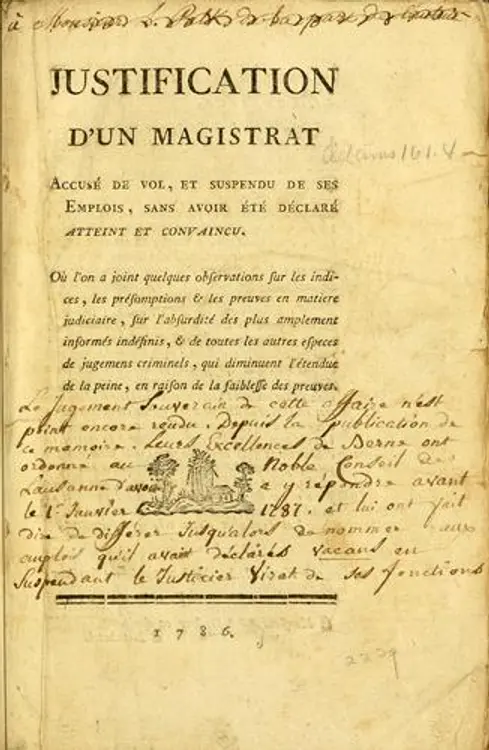 à Monsieur
JUSTIFICATION
D'UN MAGISTRAT
Adams 161.4
ACCUSÉ DE VOL, ET SUSPENDU DE SES
EMPLOIS, SANS AVOIR ÉTÉ DÉCLARÉ
ATTEINT ET CONVAINCU.
Où l'on a joint quelques obſervations ſur les indi-
ces, les préſomptions & les preuves en matiere
judiciaire, ſur l'abſurdité des plus amplement
informés indéfinis, & de toutes les autres eſpeces
de jugemens criminels, qui diminuent l'étendue
de la peine, en raiſon de la foibleſſe des preuves.
Le Jugement Souverain de cette affaire n'est
point encore rendu. Depuis la publication de
ce memoire. Leurs Excellences de Berne ont
ordonné au Noble Conseil de
Lausanne d'avoir a y répondre avant
le 1er Janvier 1787. et lui ont fait
dire de differer Jusqu'alors de nommer aux
emplois qu'il avait déclarés vacans en
Suspendant le Justicier de ses fonctions
1786.
2229